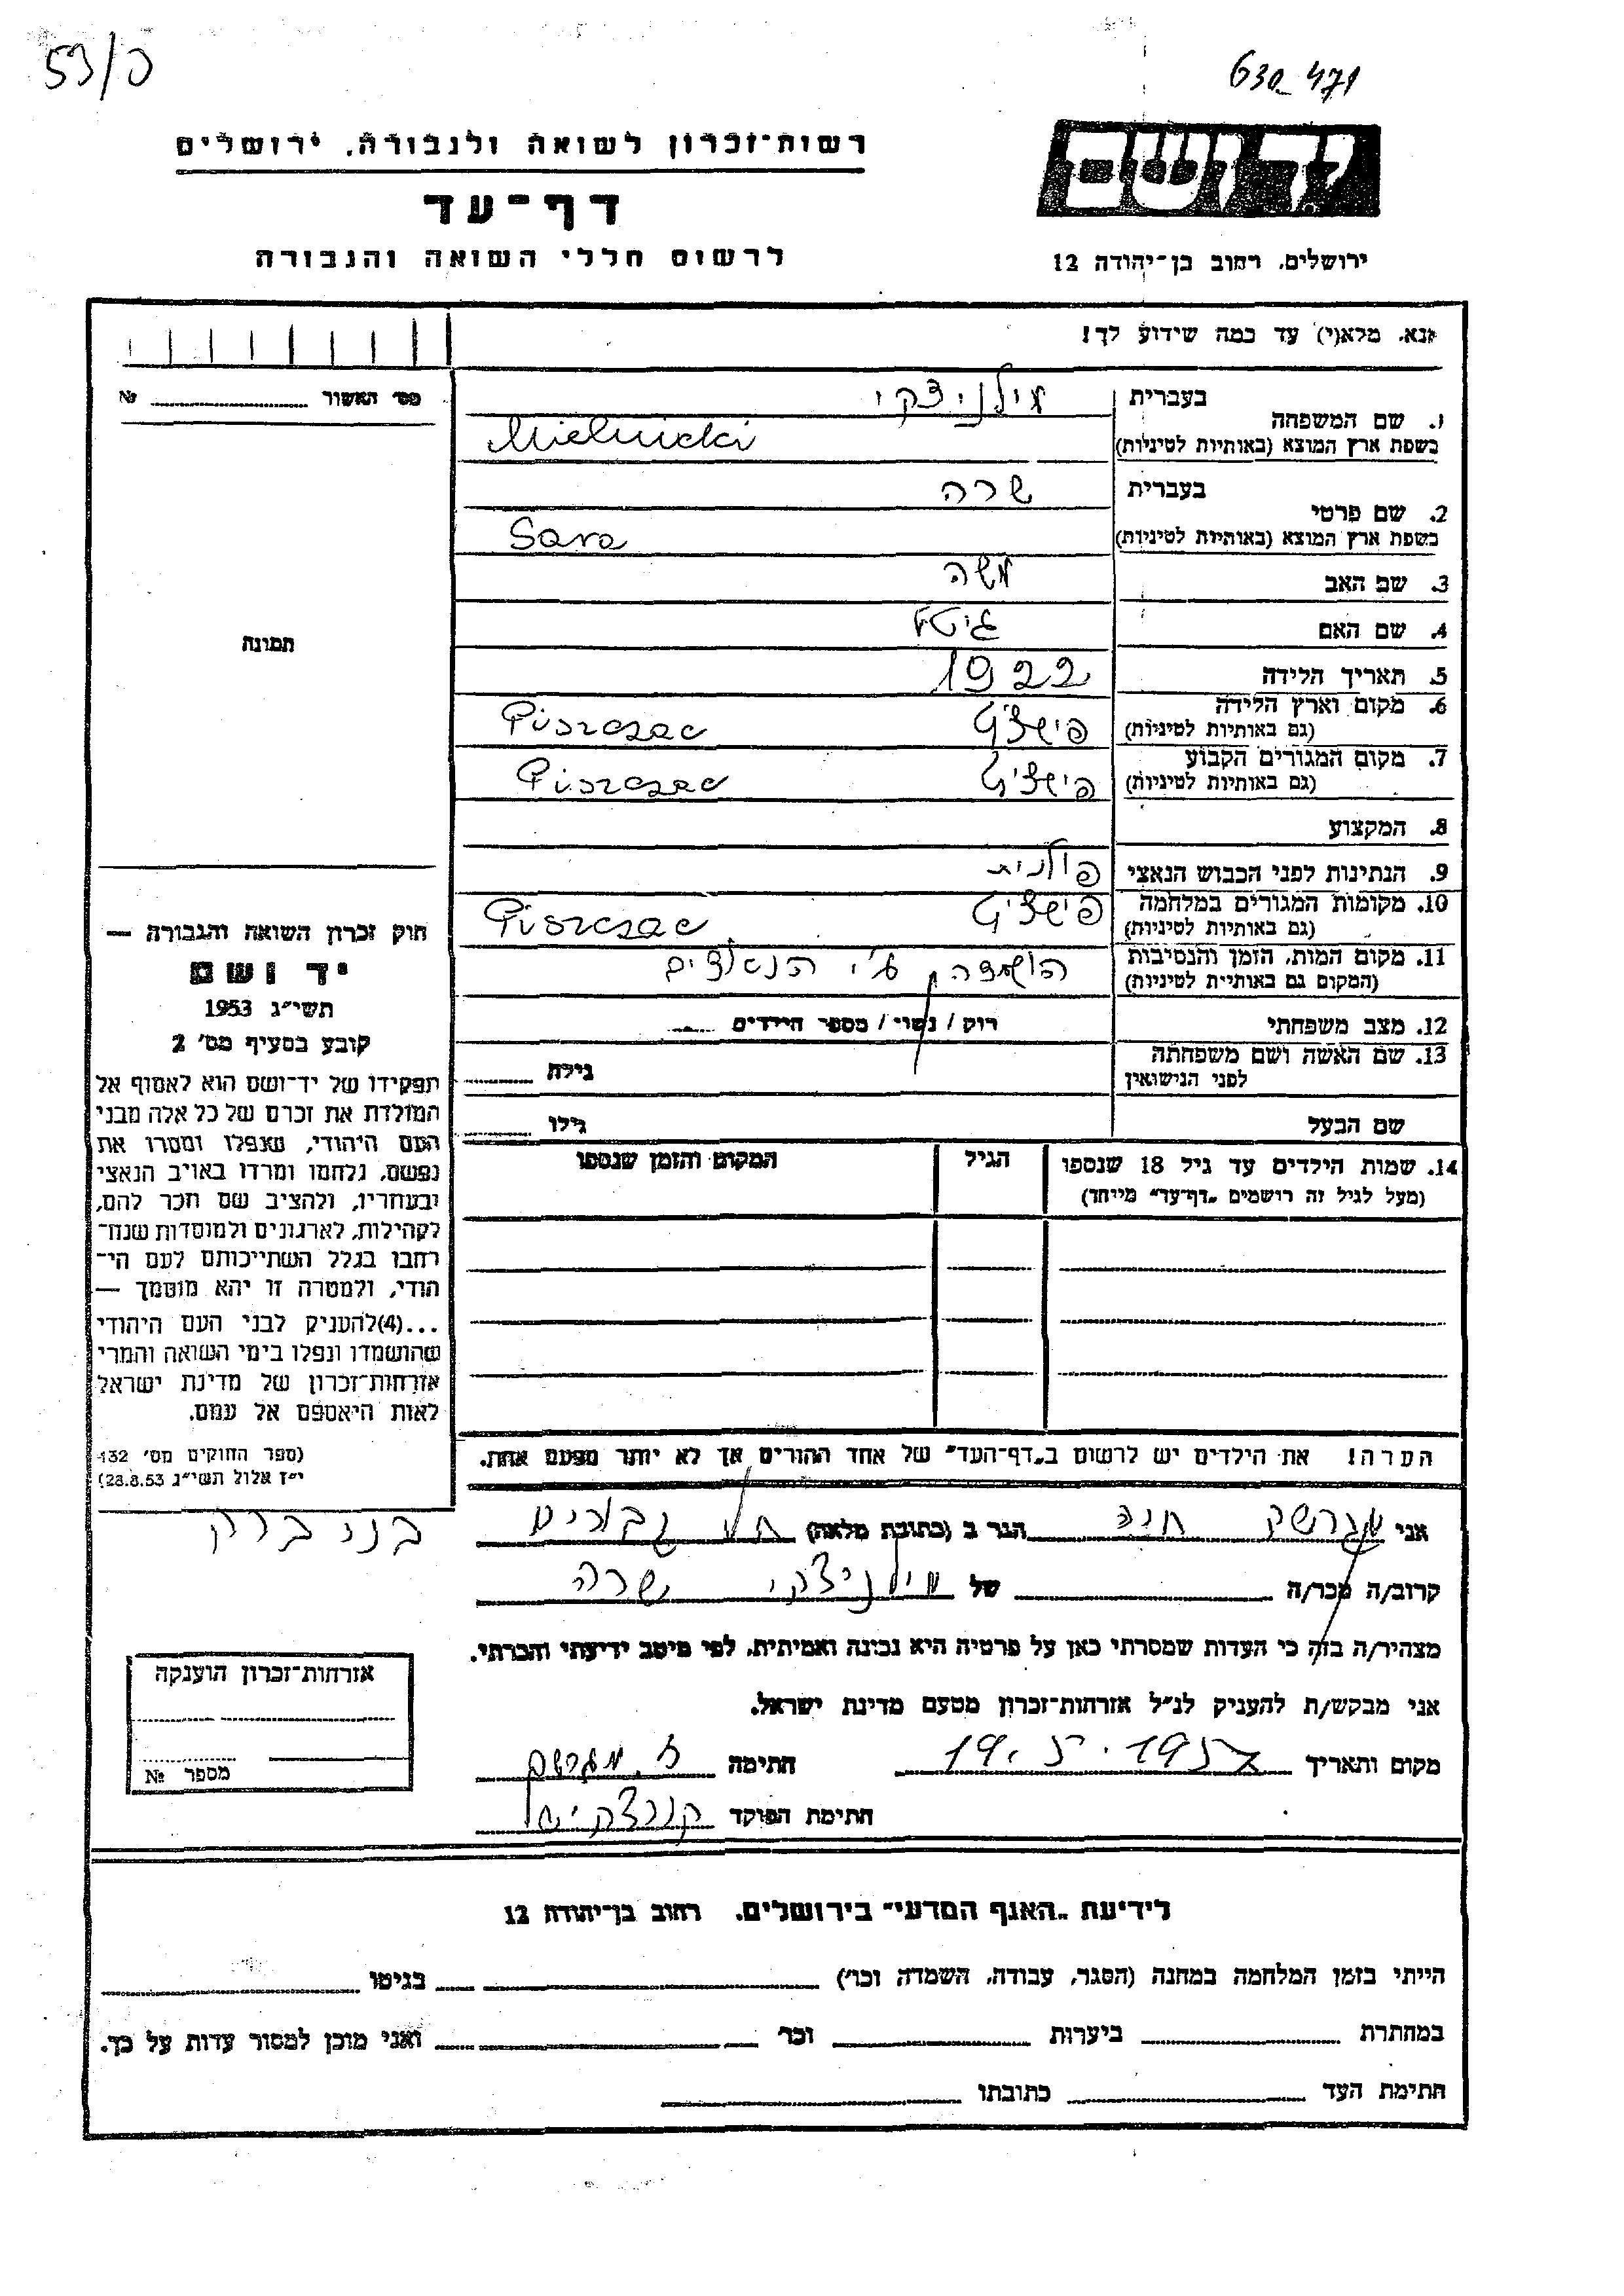 53/כ
630 471
רשות־זכרון לשואה ולגבורה, ירושלים
דף־עד
לרשום חללי השואה והגבורה
יד ושם
ירושלים, רחוב בן־יהודה 12
נא, מלא(י) עד כמה שידוע לך!
מס׳ האשור №
1. שם המשפחה בעברית מילניצקי
בשפת ארץ המוצא (באותיות לטיניות) Mielnicki
2. שם פרטי בעברית שרה
בשפת ארץ המוצא (באותיות לטיניות) Sara
3. שם האב משה
4. שם האם גיטל
5. תאריך הלידה 1922
6. מקום וארץ הלידה (גם באותיות לטיניות) פישצ׳ץ Piszczac
7. מקום המגורים הקבוע (גם באותיות לטיניות) פישצ׳ץ Piszczac
8. המקצוע
9. הנתינות לפני הכבוש הנאצי פולנית
10. מקומות המגורים במלחמה (גם באותיות לטיניות) פישצ׳ץ Piszczac
11. מקום המות, הזמן והנסיבות (המקום גם באותיות לטיניות) הושמדה ע״י הנאצים
12. מצב משפחתי רוק / נשוי / מספר הילדים
13. שם האשה ושם משפחתה לפני הנישואין גילה
שם הבעל גילו
14. שמות הילדים עד גיל 18 שנספו הגיל המקום והזמן שנספו
(מעל לגיל זה רושמים „דף־עד״ מייחד)
הערה! את הילדים יש לרשום ב„דף־העד״ של אחד ההורים אך לא יותר מפעם אחת.
תמונה
חוק זכרון השואה והגבורה —
יד ושם
תשי״ג 1953
קובע בסעיף מס׳ 2
תפקידו של יד־ושם הוא לאסוף אל
המולדת את זכרם של כל אלה מבני
העם היהודי, שנפלו ומסרו את
נפשם, נלחמו ומרדו באויב הנאצי
ובעוזריו, ולהציב שם וזכר להם,
לקהילות, לארגונים ולמוסדות שנח־
רחבו בגלל השתייכותם לעם הי־
הודי, ולמטרה זו יהא מוסמך —
...(4)להעניק לבני העם היהודי
שהושמדו ונפלו בימי השואה והמרי
אזרחות־זכרון של מדינת ישראל
לאות היאספם אל עמם.
(ספר החוקים מס׳ 132
י״ז אלול תשי״ג 28.8.53)
אני מגרשק חיה הגר ב (כתובת מלאה) בני ברק
קרוב/ה מכר/ה של מילניצקי שרה
מצהיר/ה בזה כי העדות שמסרתי כאן על פרטיה היא נכונה ואמיתית, לפי מיטב ידיעתי והכרתי.
אני מבקש/ת להעניק לנ״ל אזרחות־זכרון מטעם מדינת ישראל.
מקום ותאריך 19.5.1957 חתימה
חתימת הפוקד
אזרחות־זכרון הוענקה
מספר №
לידיעת „האגף המדעי״ בירושלים, רחוב בן־יהודה 12
הייתי בזמן המלחמה במחנה (הסגר, עבודה, השמדה וכו׳) בגיטו
במחתרת ביערות וכו׳ ואני מוכן למסור עדות על כך.
חתימת העד כתובתו